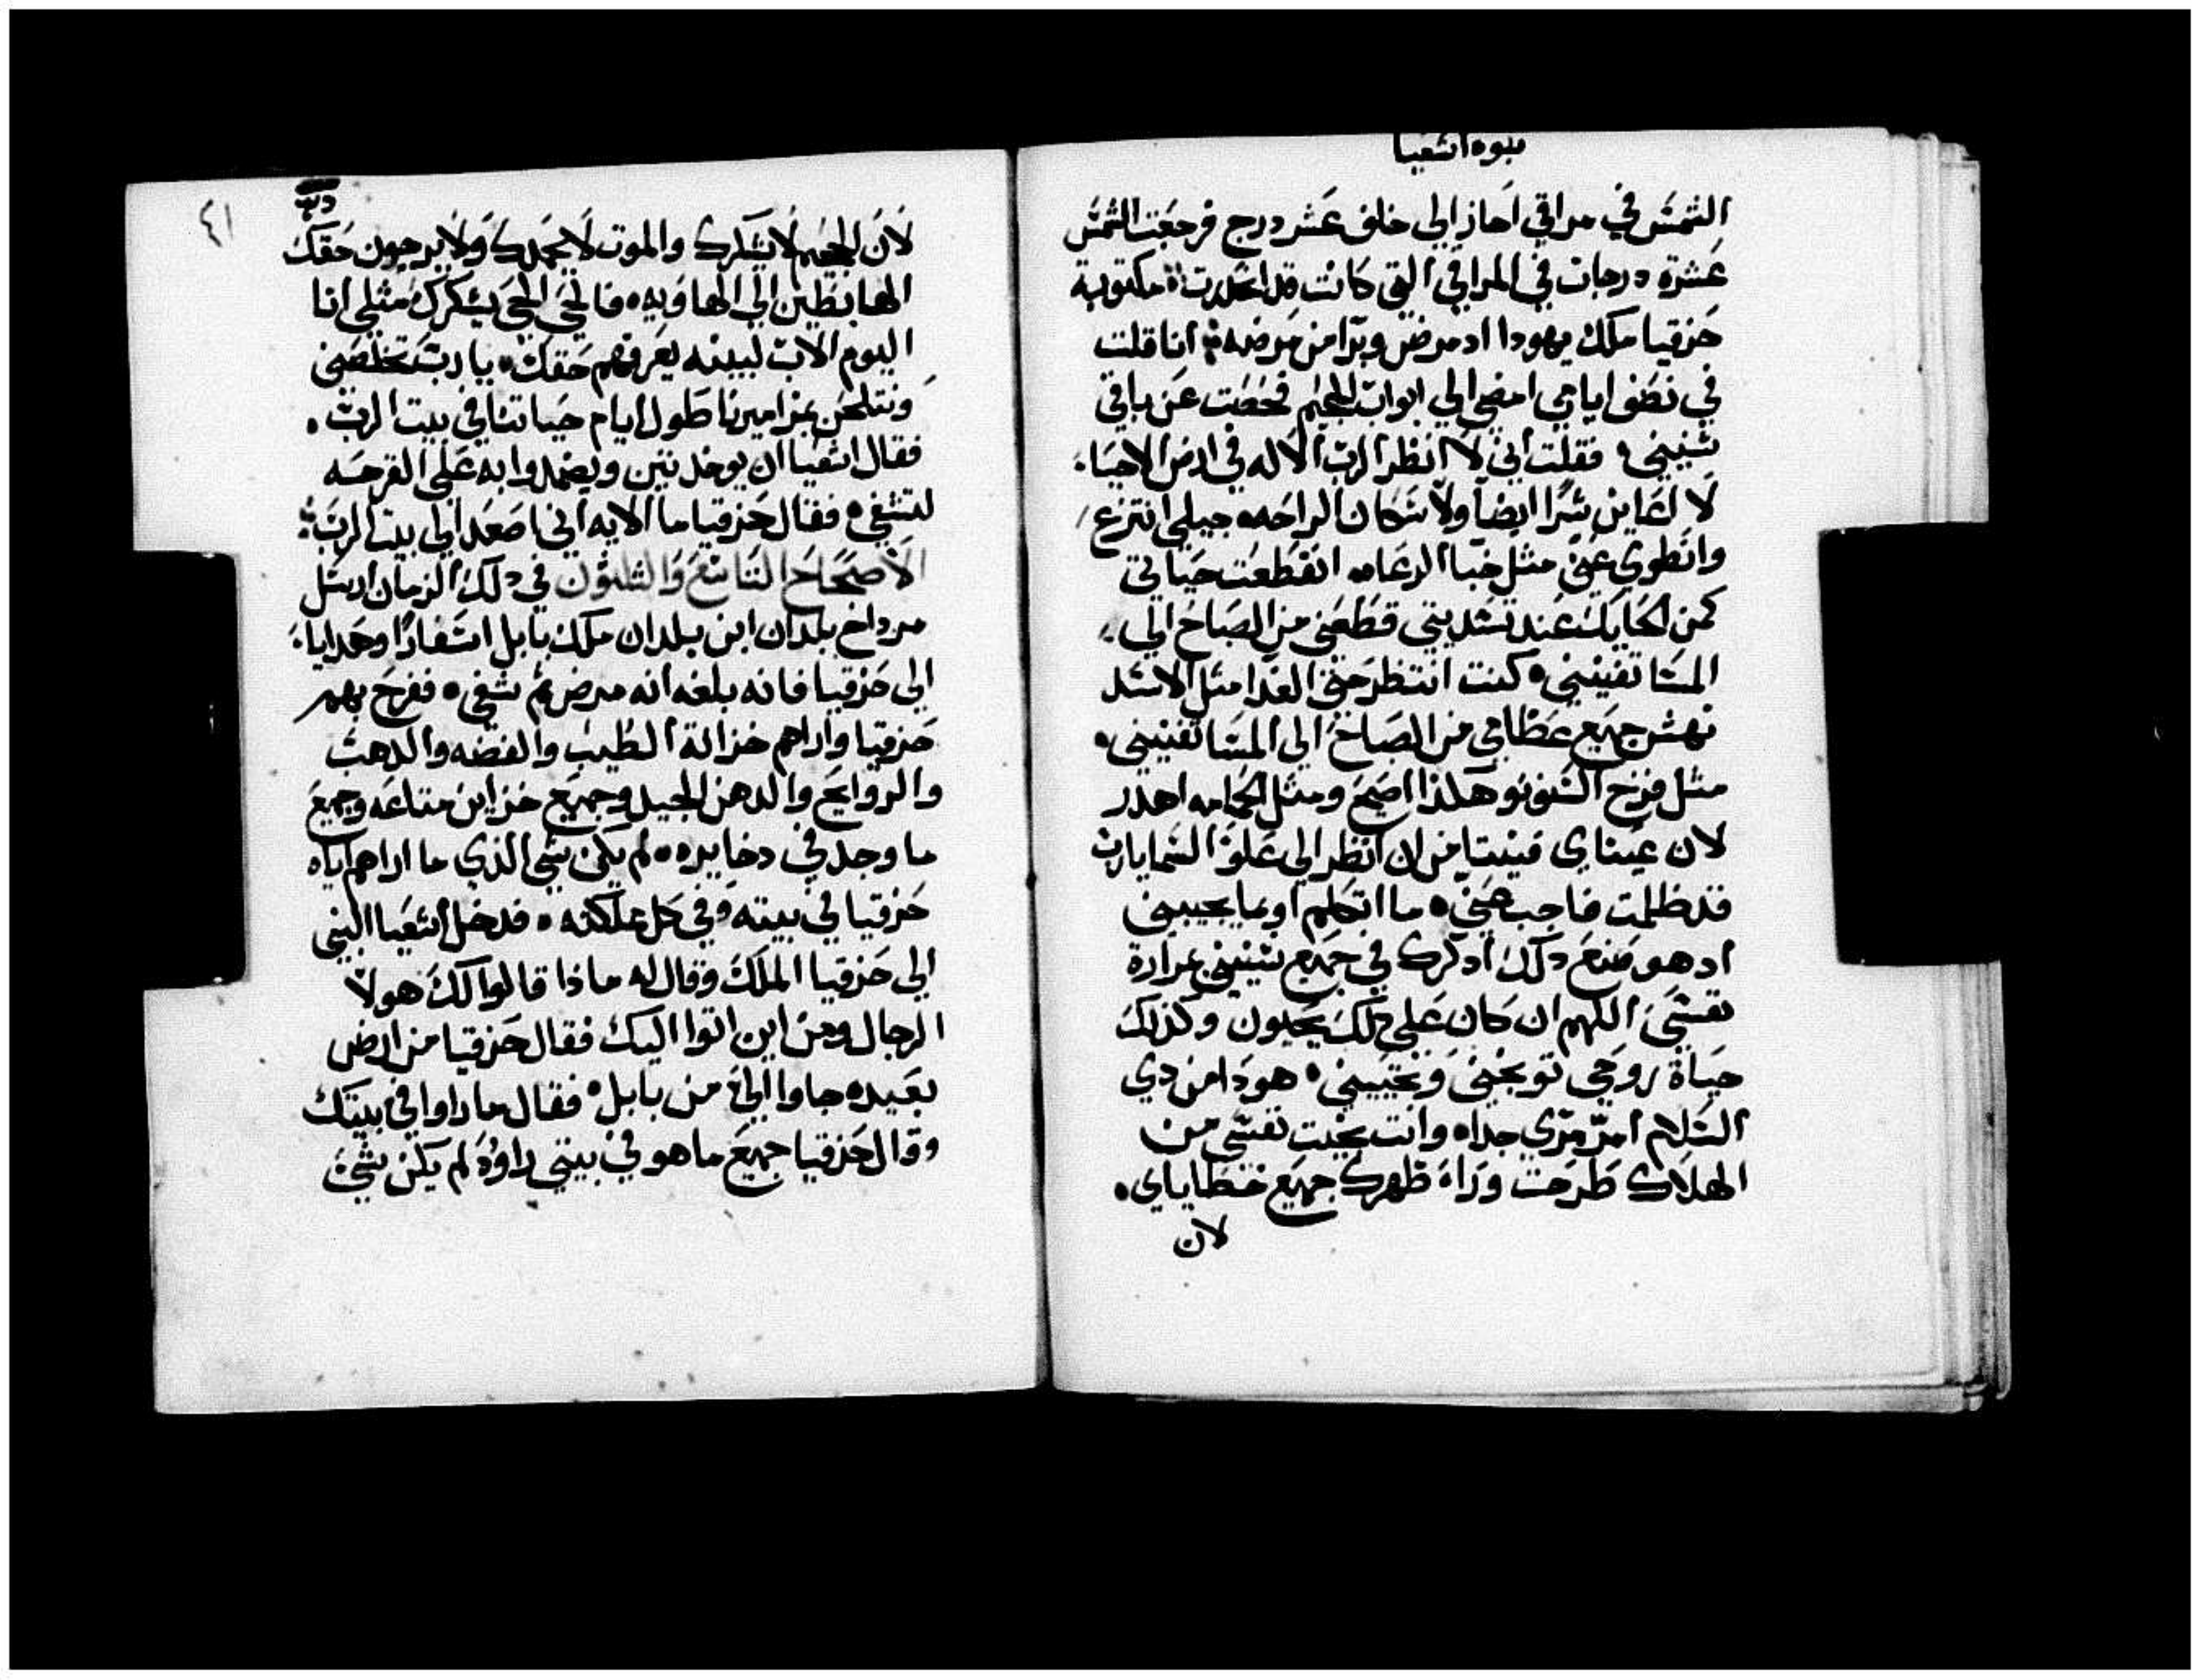 نبوة اشعيا
الشمس في مراقي احاز الي خلف عشر درج فرجعت الشمس
عشرة درجات في المراقي التي كانت قد انحدرت ۞ مكتوبة
حزقيا ملك يهودا اد مرض وبرا من مرضه ۞ انا قلت
في نصف ايامي امضي الي ابواب الجحيم فحصت عن باقي
سنيني ۰ فقلت اني لا انظر الرب الاله في ارض الاحيا ۰
لا اعاين بشرًا ايضًا ولا سكان الراحه ۰ جيلي انتزع
وانطوي عني مثل خبا الرعاه ۰ انقطعت حياتي
كمن الحايك عند تسديتي قطعني من الصباح الي
المسا تفنيني ۰ كنت انتظر حتي الغدا مثل الاسد
نهش جميع عظامي من الصباح الي المسا تفنيني ۰
مثل فرخ السنونو هكذا اصيح ومثل الحمامه اهدر
لان عيناي فنيتا من ان انظر الي علو السما يا رب
قد ظلمت فاجب عني ۰ ما اتكلم او بما يجيبني
اد هو صنع دلك ادكرك في جميع سنيني بمرارة
نفسي اللهم ان كان علي تلك يحيون وكذلك
حياة روحي توبخني وتحييني ۰ هودا من دي
السلام امرّ مرّي جدا ۰ وانت نجيت نفسي من
الهلاك طرحت وراء ظهرك جميع خطاياي ۰
لان
٤١
لان الجحيم لا يشكرك والموت لا يحمدك ولا يرجون حقك
الهابطين الي الهاويه ۰ فالحي الحي يشكرك مثلي انا
اليوم الاب لبينه يعرفهم حقك ۰ يا رب تخلصني
ونتلحن بمزاميرنا طول ايام حياتنا في بيت الرب ۰
فقال اشعيا ان يوخد تين ويضمدوا به علي القرحسه
لتشفي ۰ فقال حزقيا ما الايه اني اصعد الي بيت الرب ۞
الاصحاح التاسع والثلثون في دلك الزمان ارسل
مرداخ بلدان ابن بلدان ملك بابل اسفارًا وهدايا ۰
الي حزقيا فانه بلغه انه مرض ثم شفي ۰ ففرح بهم
حزقيا واراهم خزانة الطيب والفضه والدهب
والروايح والدهن الجيد وجميع خزاين متاعه وجميع
ما وجد في دخايره ۰ لم يكن شي الذي ما اراهم اياه
حزقيا في بيته وفي كل مملكته ۰ فدخل اشعيا النبي
الي حزقيا الملك وقال له ماذا قالوا لك هولا
الرجال ومن اين اتوا اليك فقال حزقيا من ارض
بعيده جاوا اليّ من بابل ۰ فقال ما راوا في بيتك
وقال حزقيا جميع ما هو في بيتي راوه لم يكن شيء